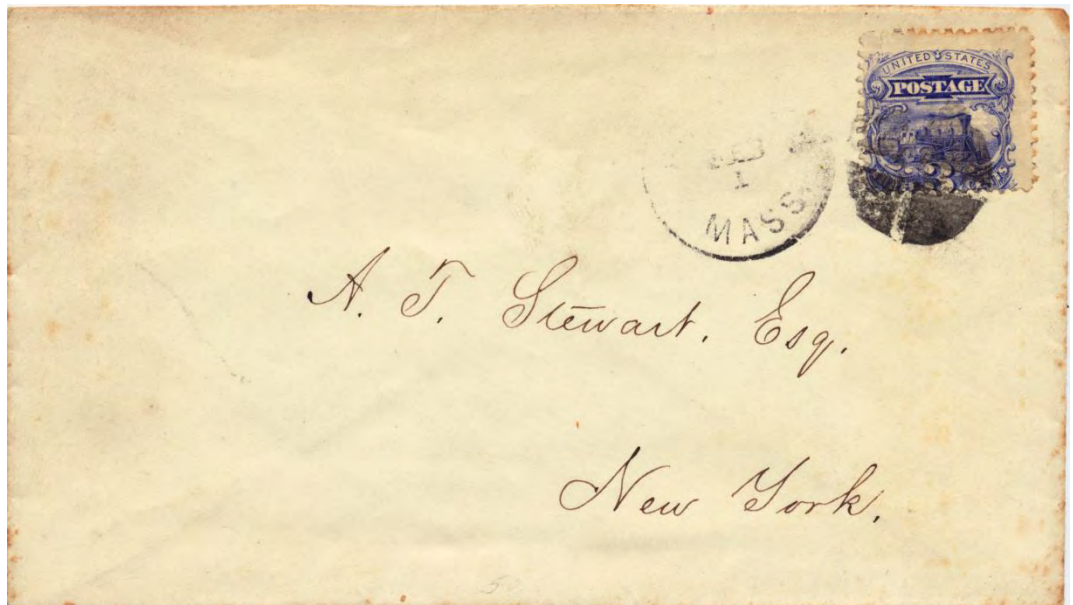 UNITED STATES
POSTAGE
3
1
MASS.
A. T. Stewart. Esq.
New York.